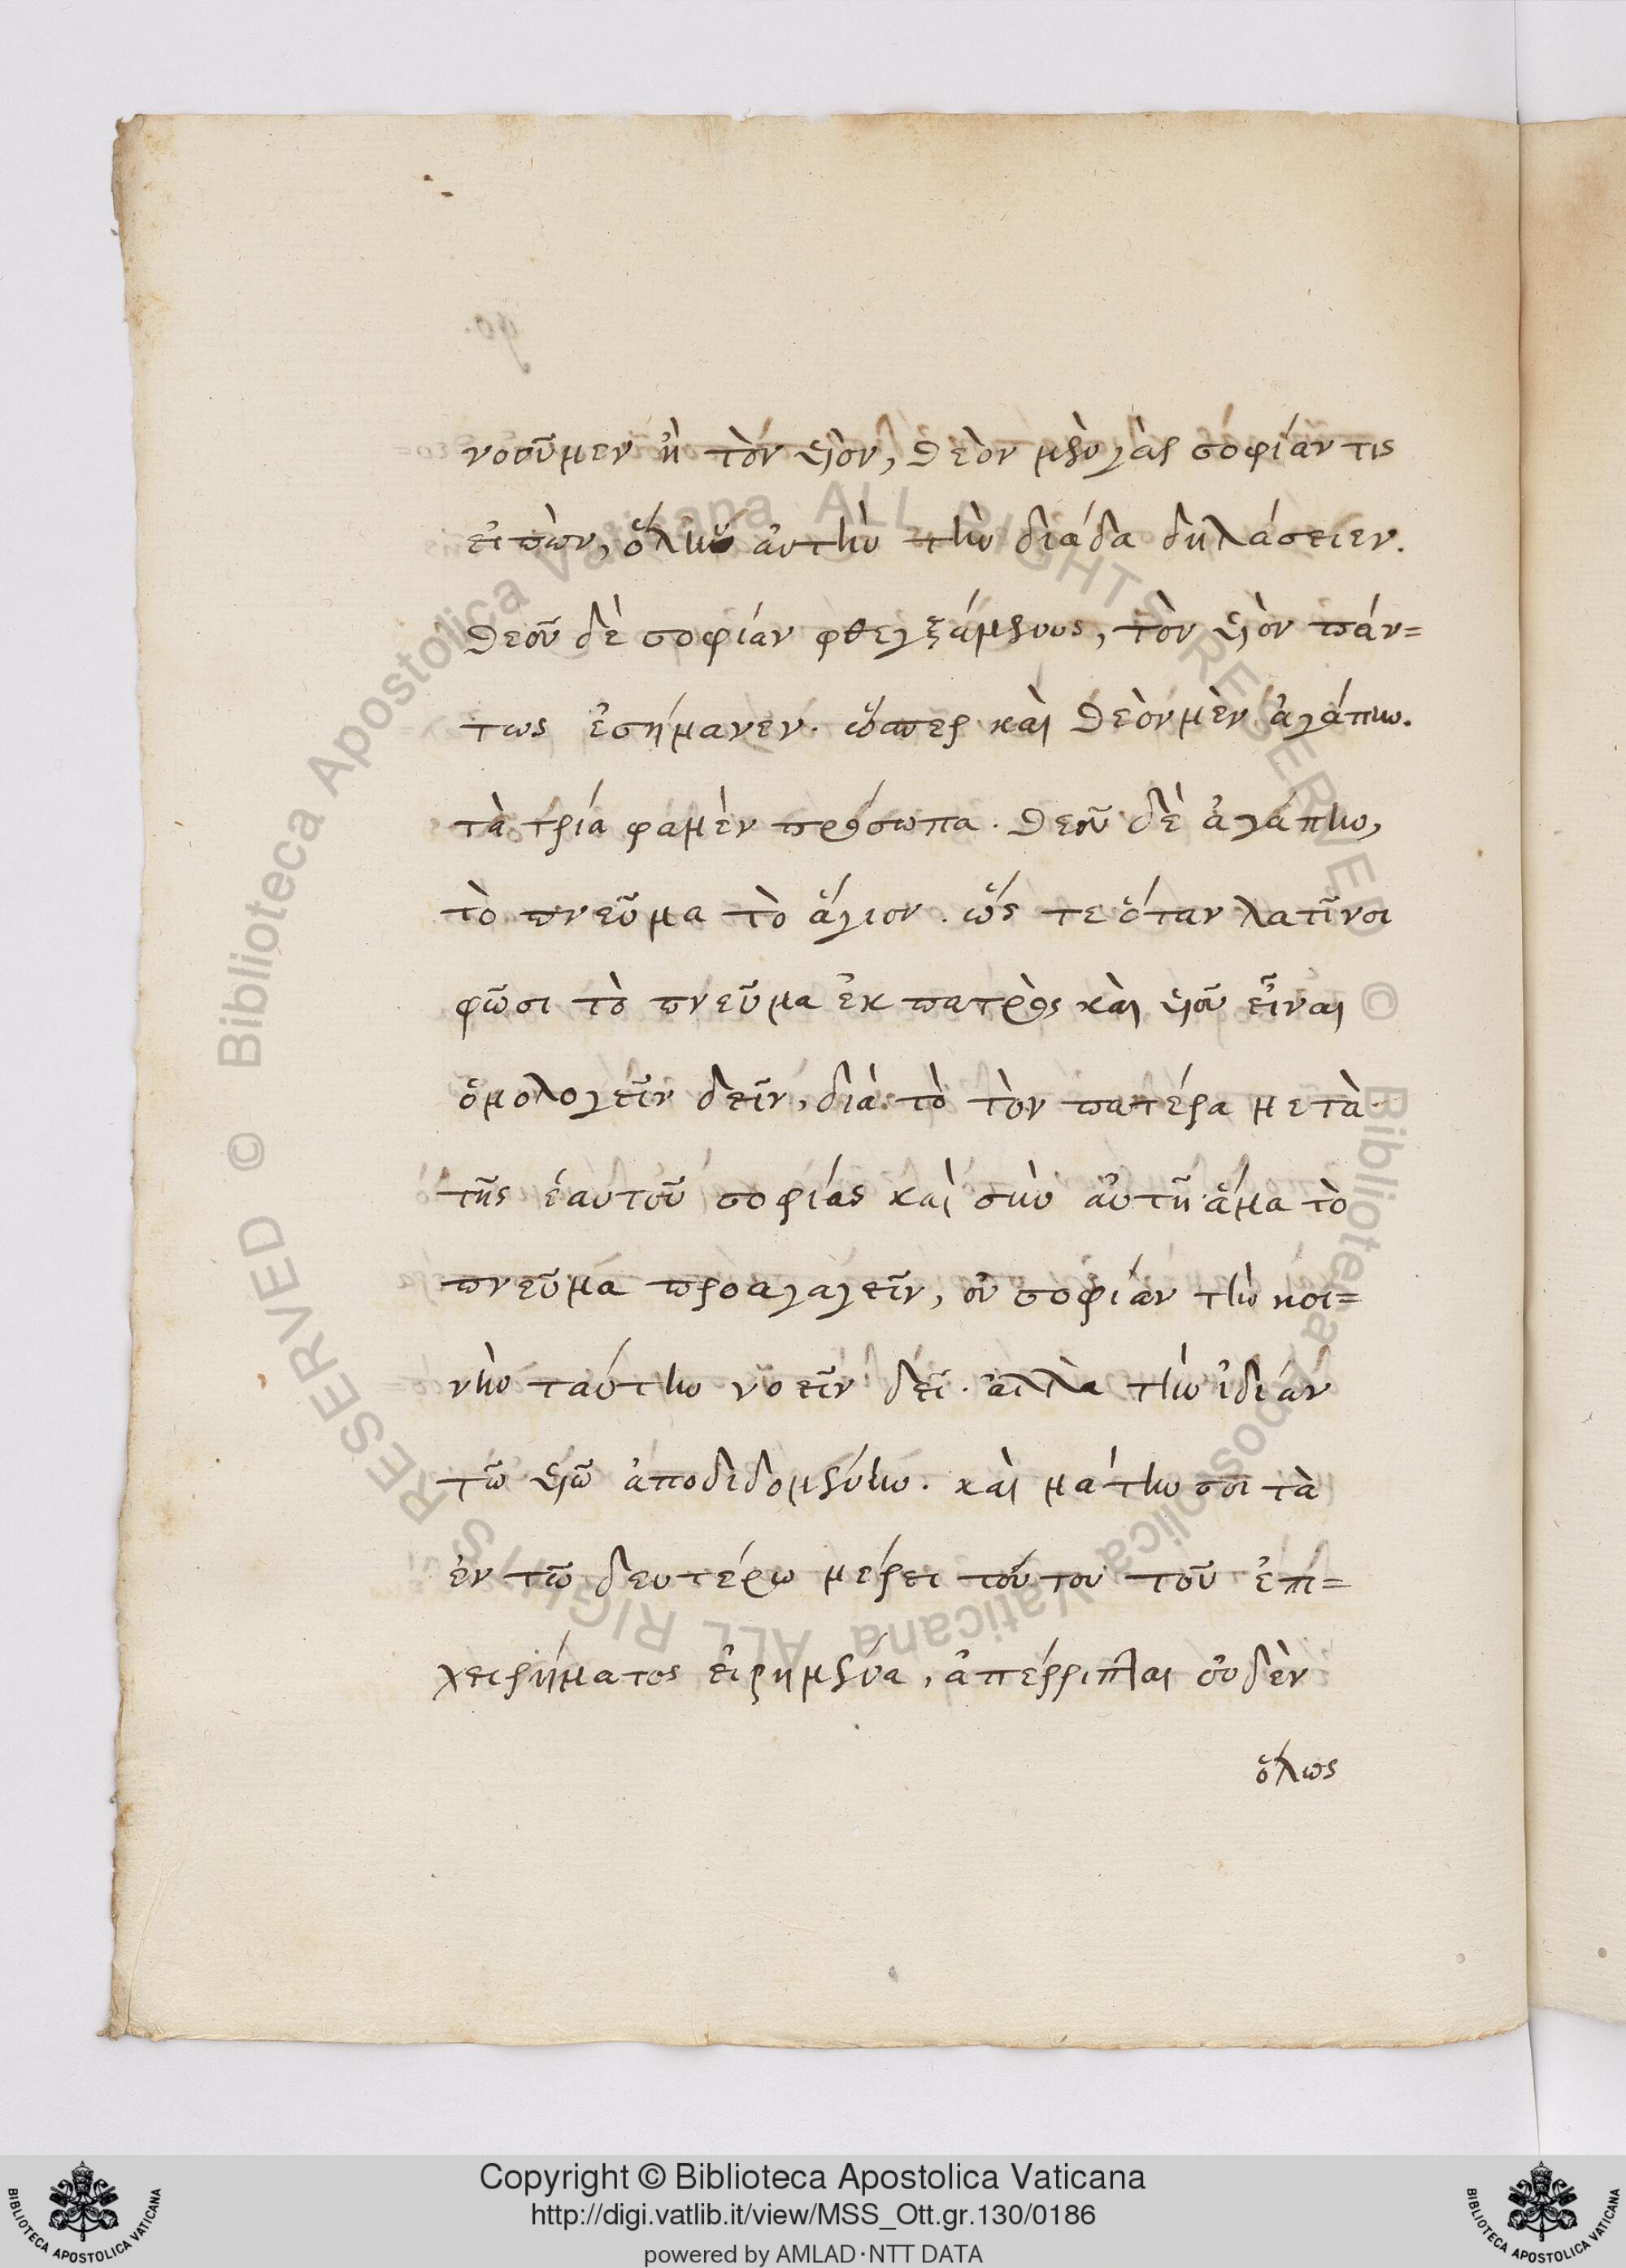 νοοῦμεν ἢ τὸν υἱὸν, θεὸν μὲν γὰρ σοφίαν τις
εἰπὼν, ὅλην αὐτὴν τὴν τριάδα δηλώσειεν.
θεοῦ δὲ σοφίαν φθεγξάμενος, τὸν υἱὸν πάν=
τως ἐσήμανεν. ὥσπερ καὶ θεὸν μὲν ἀγάπην.
τὰ τρία φαμὲν πρόσωπα. θεοῦ δὲ ἀγάπην,
τὸ πνεῦμα τὸ ἅγιον. ὥς τε ὅταν λατῖνοι
φῶσι τὸ πνεῦμα ἐκ πατρὸς καὶ υἱοῦ εἶναι
ὁμολογεῖν δεῖν, διὰ τὸ τὸν πατέρα μετὰ
τῆς ἑαυτοῦ σοφίας καὶ σὺν αὐτῆ ἅμα τὸ
πνεῦμα προαγαγεῖν, οὐ σοφίαν τὴν κοι=
νὴν ταύτην νοεῖν δεῖ. ἀλλὰ τὴν ἰδίαν
τῶ υἱῶ ἀποδιδομένην. καὶ μάτην σοι τὰ
ἐν τῶ δευτέρω μέρει τούτου τοῦ ἐπι=
χειρήματος εἰρημένα, ἀπέρριπται οὐδὲν
ὅλως
Copyright © Biblioteca Apostolica Vaticana
http://digi.vatlib.it/view/MSS_Ott.gr.130/0186
powered by AMLAD·NTT DATA
BIBLIOTECA APOSTOLICA VATICANA
BIBLIOTECA APOSTOLICA VATICANA
© Biblioteca Apostolica Vaticana ALL RIGHTS RESERVED
© Biblioteca Apostolica Vaticana ALL RIGHTS RESERVED